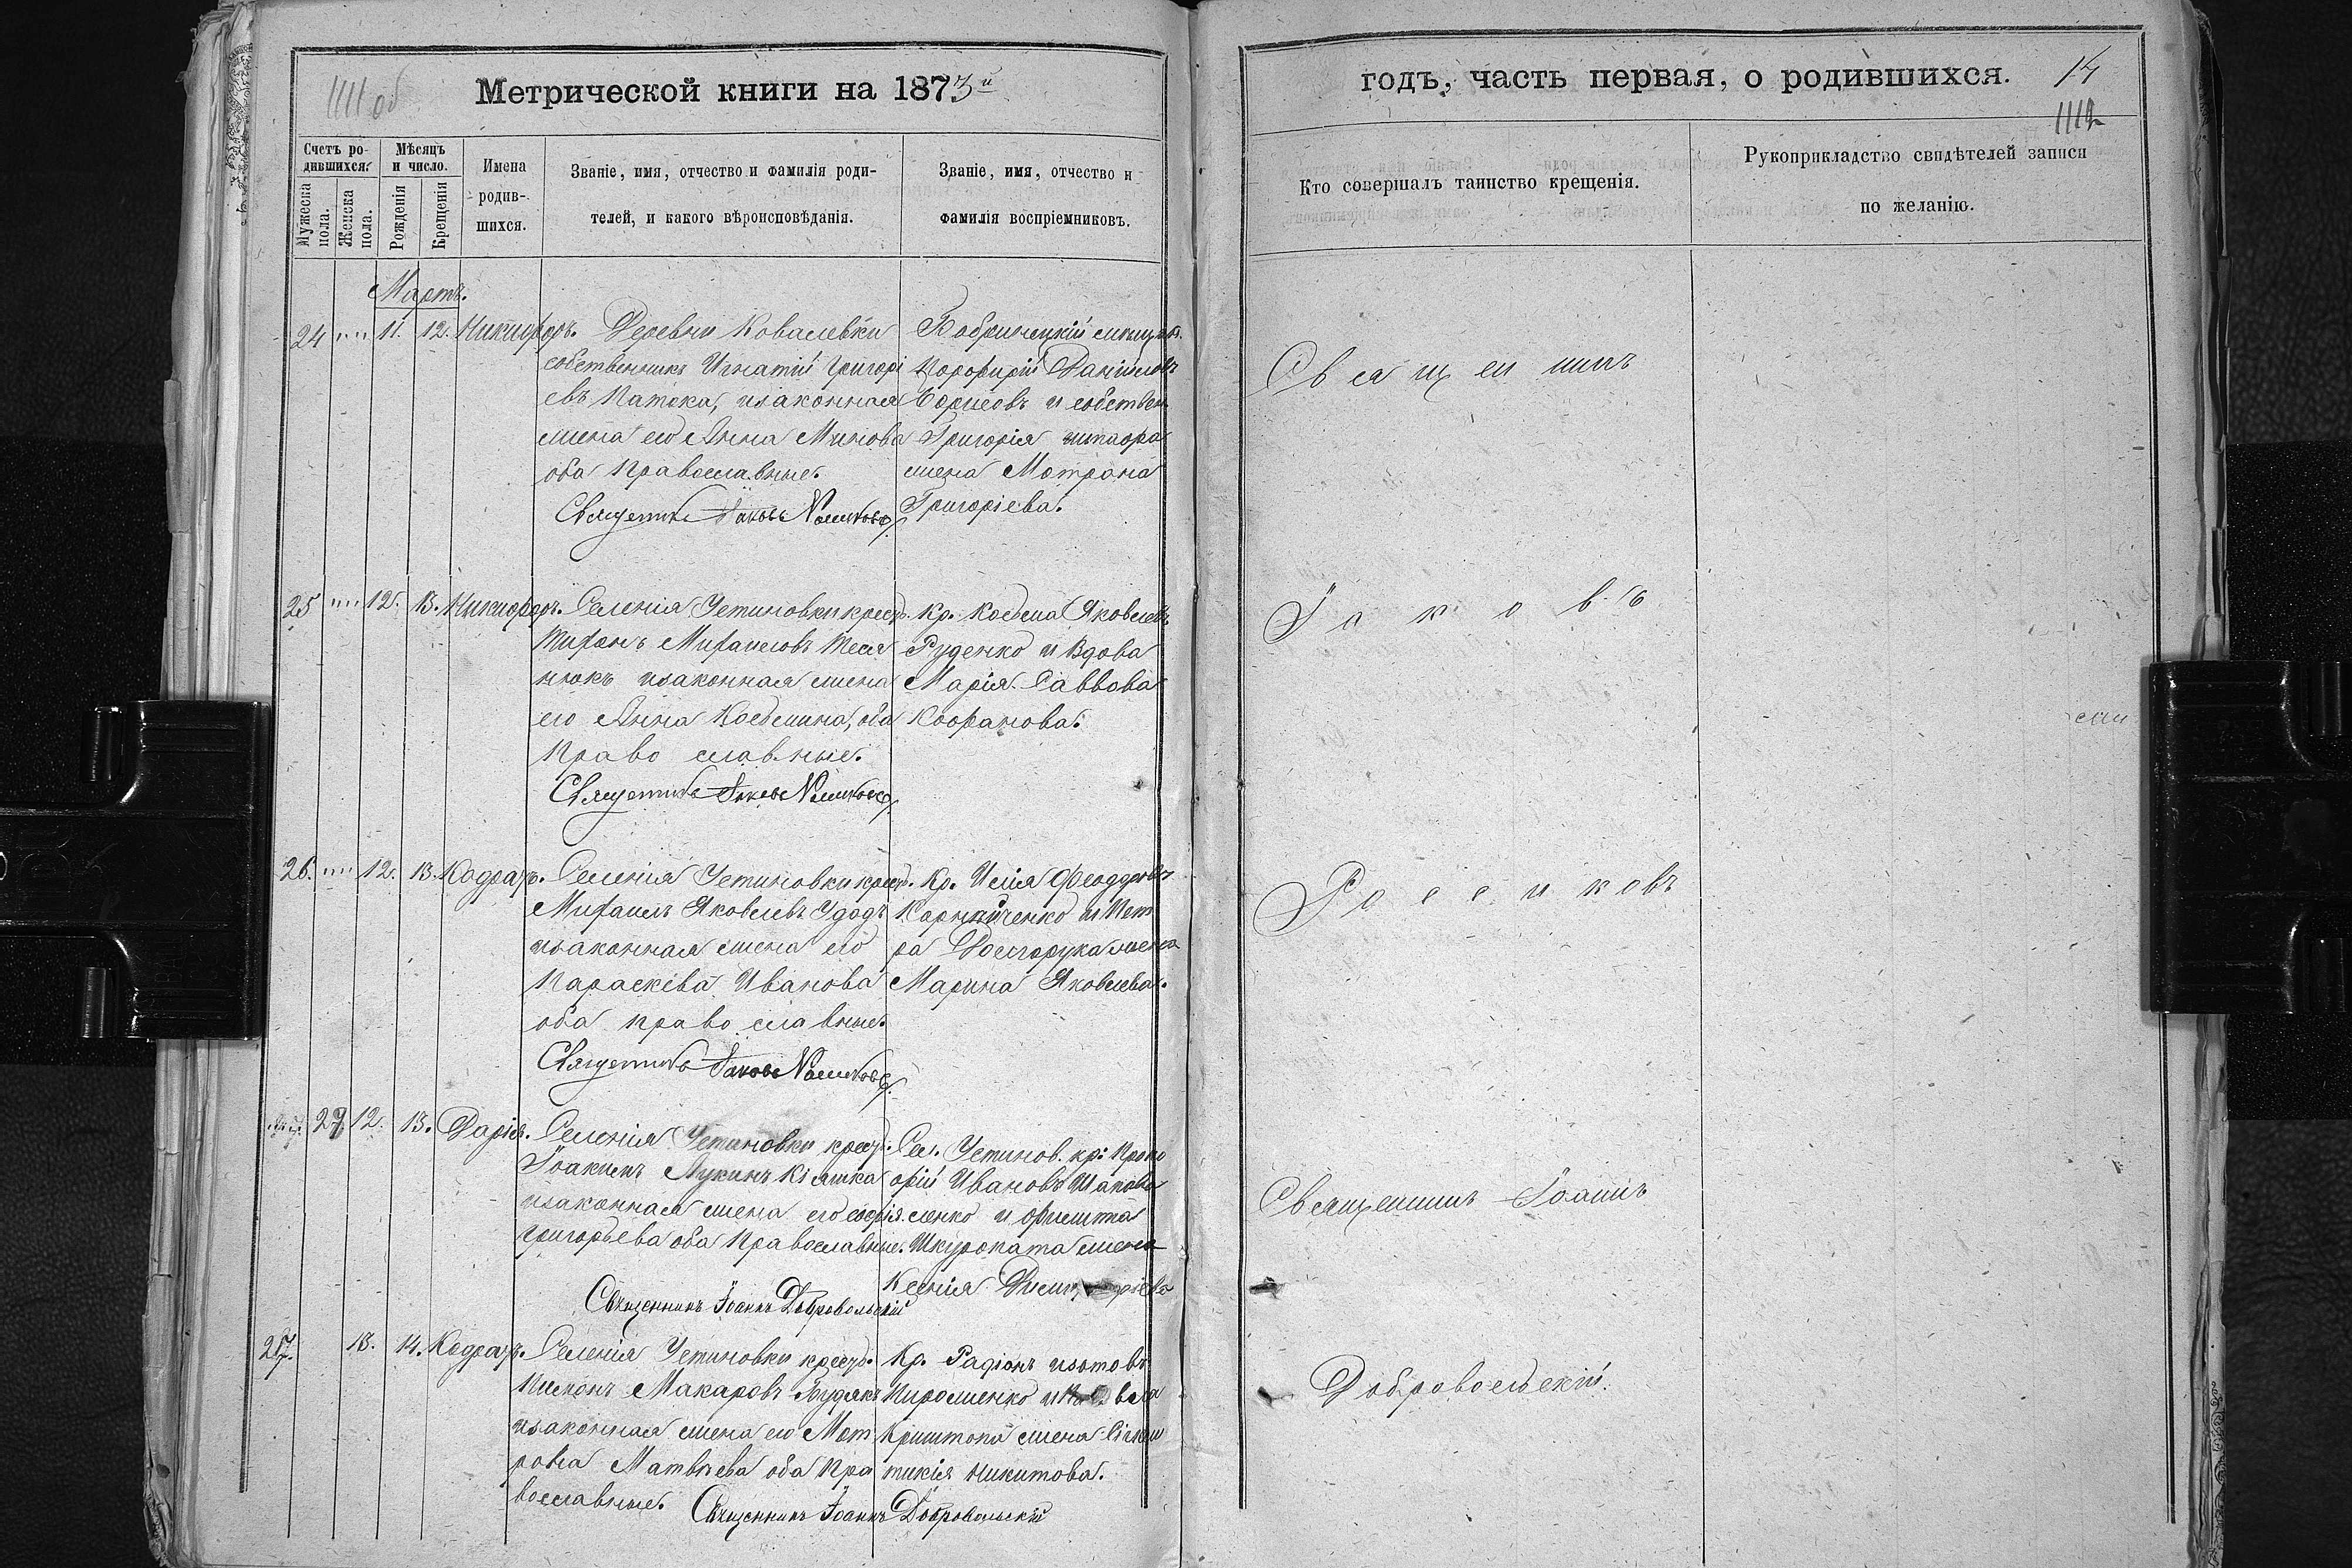 1111 об
Метрической книги на 1873й
Счетъ ро-
дившихся.
Мужеска
пола.
Женска
пола.
Мѣсяцъ
и число.
Рожденія
Крещенія
Имена
родив-
шихся.
Званіе, имя, отчество и фамилія роди-
телей, и какого вѣроисповѣданія.
Званіе, имя, отчество и
фамилія воспріемниковъ.
Мартъ.
24 11. 12. Никифоръ.
Деревни Ковалевки
собственникъ Игнатій Григорі
евъ Патока, изаконная
жена его Анна Минова
оба православные.
Священникъ Іаковъ
Бобринецкій мещан.
Порфирій Даніиловъ
Борисовъ и собствен.
Григорія
жена Мотрона
Григоріева.
25 12. 13. Никифоръ.
Селенія Устиновки крест.
Тифонъ Михаиловъ Тесля
нюкъ изаконная жена
его Анна Косьмина, оба
православные.
Священникъ Іаковъ
Кр. Косьма Яковлевъ
Руденко и вдова
Марія Саввова
26. 12. 13. Кодратъ.
Селенія Устиновки крест.
Михаилъ Яковлевъ Удодъ
изаконная жена его
Параскева Иванова
оба православные.
Священникъ Іаковъ
Кр. Илія Феодоровъ
Корниченко и Пет
ра Долгорука жена
Марина Яковлева.
27 12. 13. Дарія.
Селенія Устиновки крест.
Іоакимъ Лукинъ Кіяшка
изаконная жена его
Григорьева оба православные.
Священникъ Іоаннъ Добровольскій
Сел. Устинов. кр. Проко
фій Ивановъ Шапова
ленко и Филипа
Шкуропата жена
Ксенія
27. 13. 14. Кодратъ.
Селенія Устиновки крест.
Пименъ Макаровъ Гудякъ
изаконная жена его Мот
рона Матвѣева оба пра
вославные.
Священникъ Іоаннъ Добровольскій
Кр. Радіонъ Изотовъ
Мирошенко и
Криштопа жена
тикія Никитова.
годъ, часть первая, о родившихся.
14
1112
Кто совершалъ таинство крещенія.
Рукоприкладство свидѣтелей записи
по желанію.
Священникъ
Іаковъ
Священникъ Іоаннъ
Добровольскій.